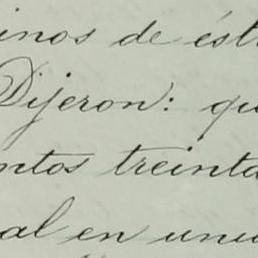 inos de ést
Dijeron: qu
ntos treinta
al en unu